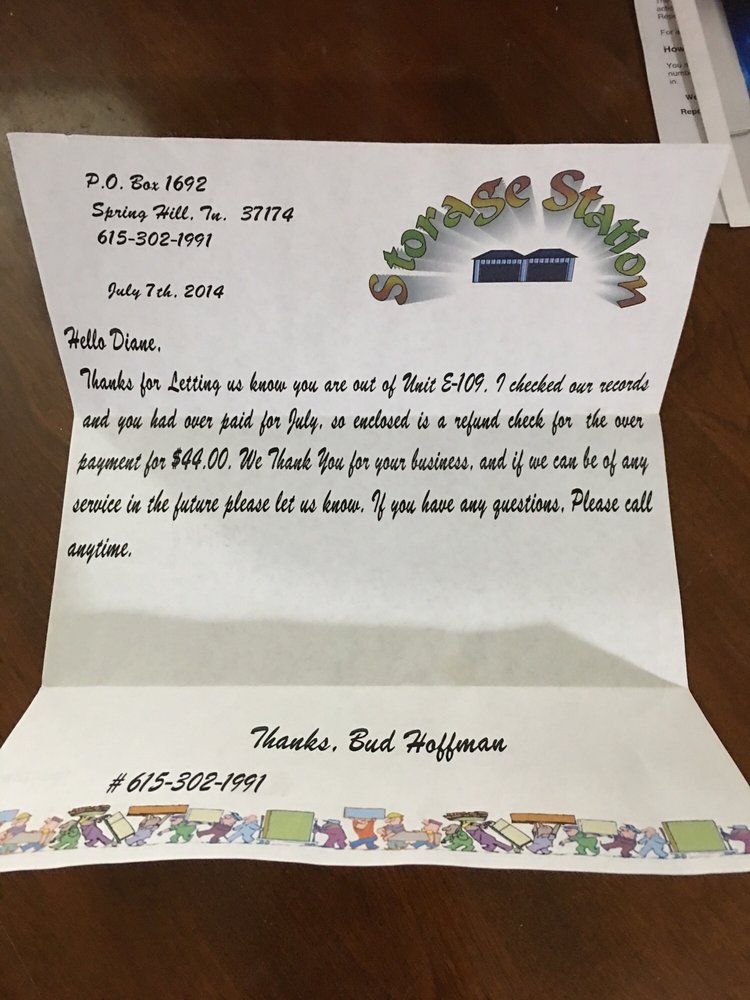 P.O. Box 1692
Spring Hill, Tn. 37174
615-302-1991
Storage Station
July 7th, 2014
Hello Diane,
Thanks for Letting us know you are out of Unit E-109. I checked our records
and you had over paid for July, so enclosed is a refund check for the over
payment for $44.00. We Thank You for your business, and if we can be of any
service in the future please let us know. If you have any questions, Please call
anytime.
Thanks, Bud Hoffman
# 615-302-1991
For a
How
You
numb
in
We
Repo